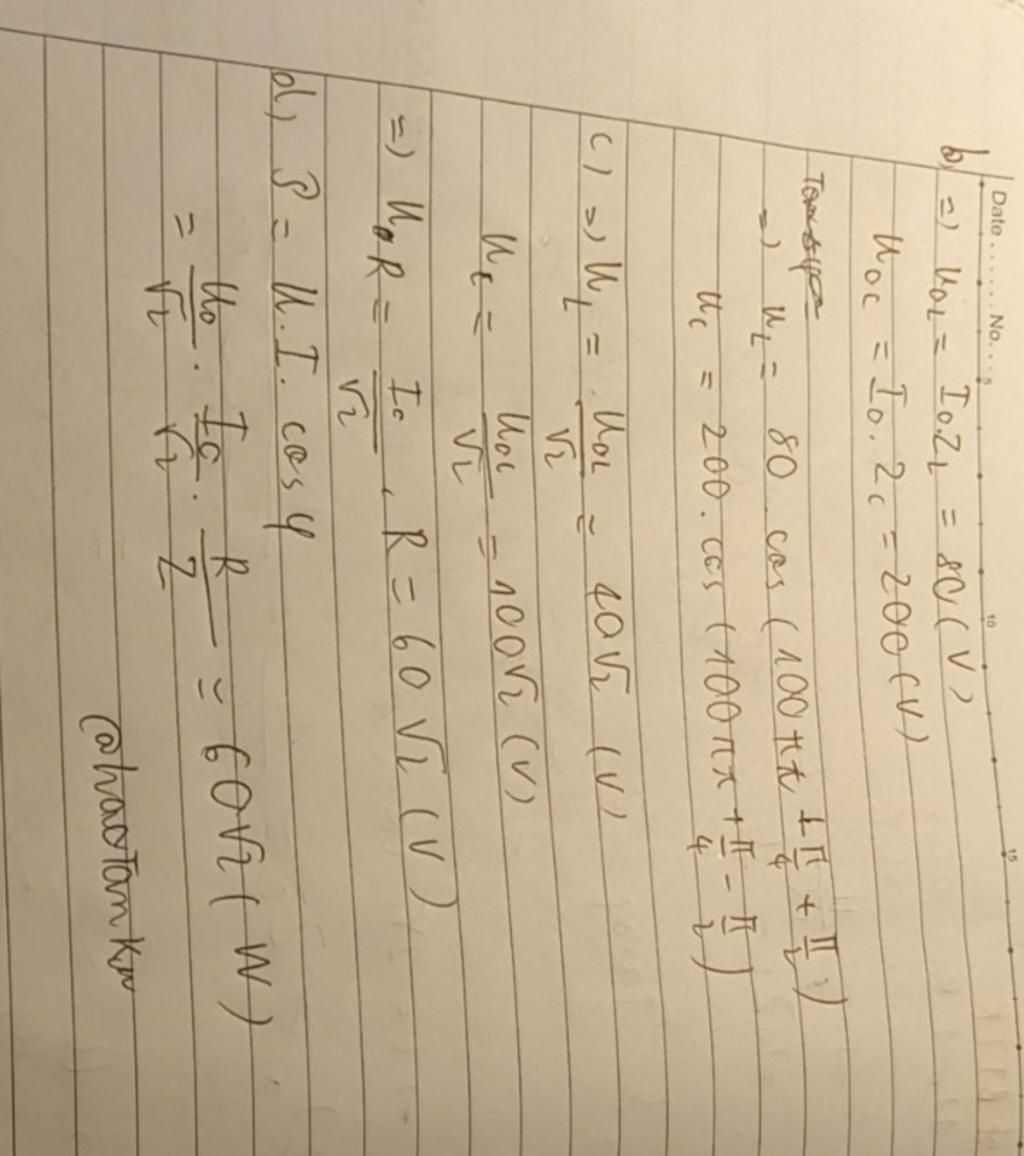 Date ...... No. .. 5 10 15
b, =) U0L = I0.ZL = 80 (V)
U0C = I0.ZC = 200 (V)
=) uL = 80 cos (100πt + π/4 + π/2)
uC = 200.cos (100πt + π/4 - π/2)
c) =) UL = U0L/√2 = 40√2 (V)
UC = U0C/√2 = 100√2 (V)
=) UR = I0/√2 . R = 60√2 (V)
d) P = U.I.cos φ
= U0/√2 . I0/√2 . R/Z = 60√2 (W)
@haoTankw